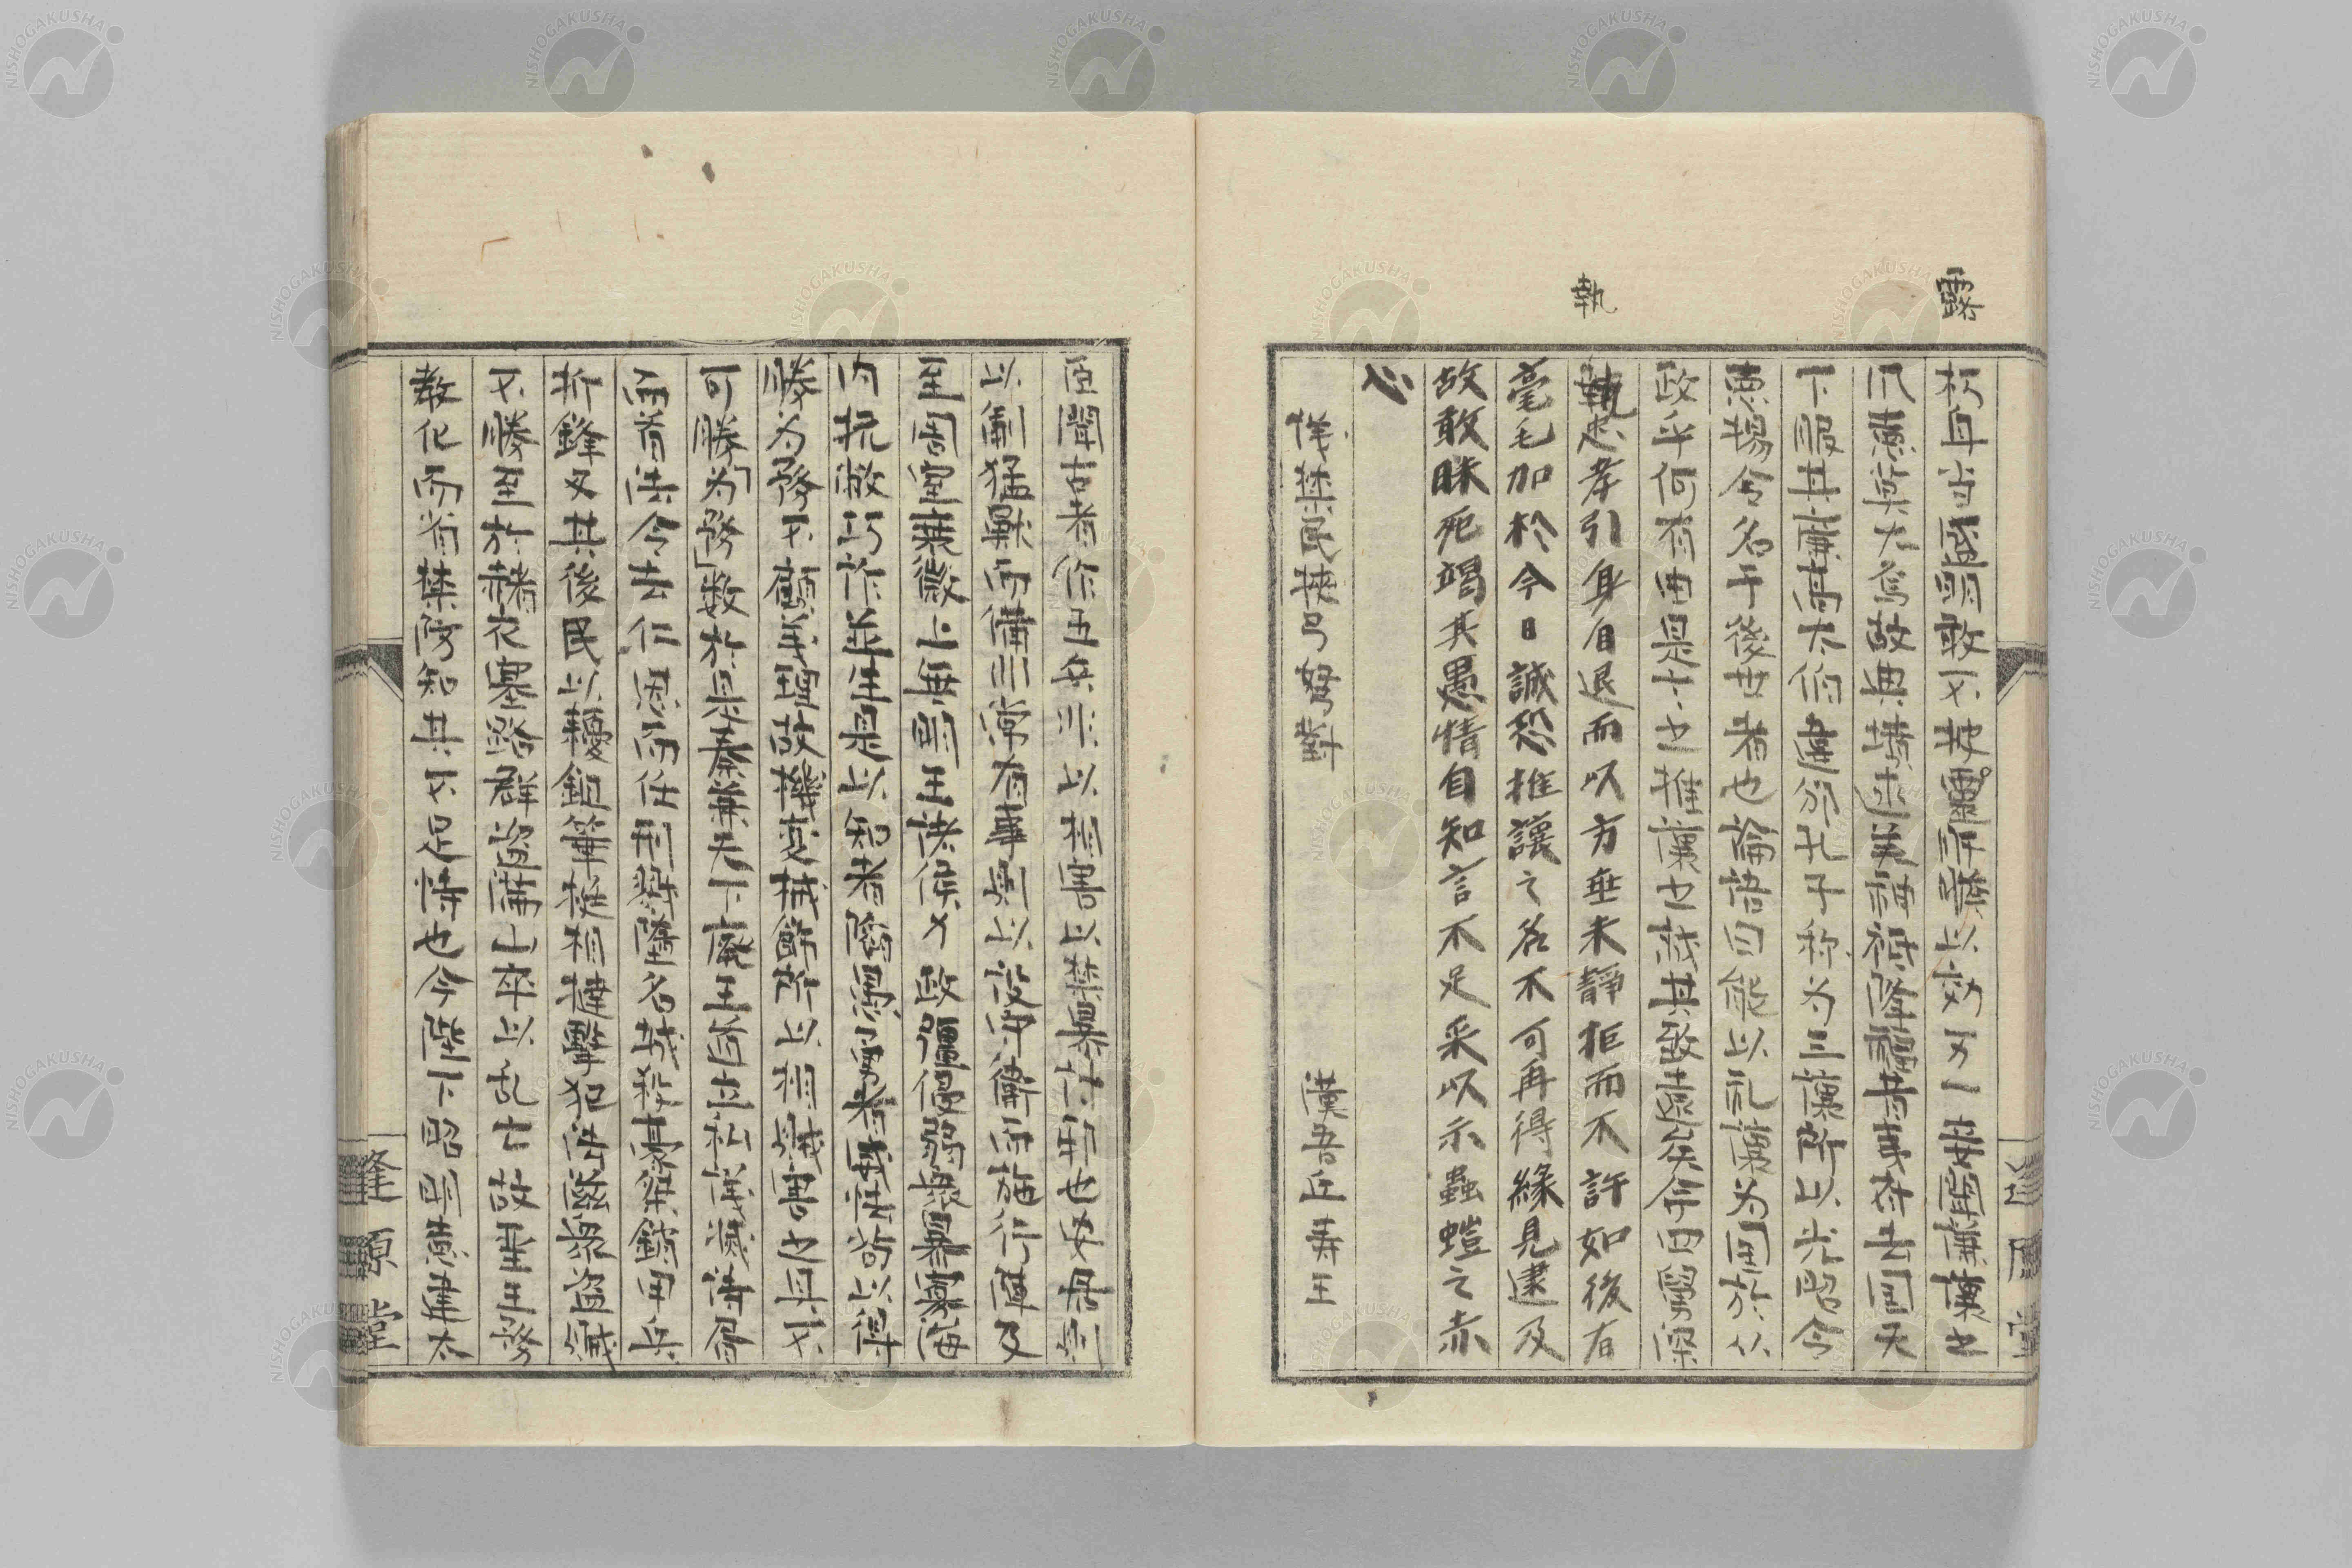 露
執
朽身當盛明敢不披露肝膽以効万一妾聞謙讓之
風悳莫大焉故典墳述美神祇降福昔夷齊去国天
下服其廉高太伯違邠孔子称为三讓所以光昭令
悳揚令名于後世者也論語曰能以礼讓为国於从
政乎何有由是言之推讓之誠其致遠矣今四舅深
執忠孝引身自退而以方垂未靜拒而不許如後有
毫毛加於今日誠恐推讓之名不可再得緣見逮及
故敢昧死竭其愚情自知言不足采以示蟲螘之赤
心
議禁民挾弓弩對 漢吾丘壽王
臣聞古者作五兵非以相害以禁暴討邪也安居則
以制猛獸而備非常有事則以設守衛而施行陣及
至周室衰微上無明王諸侯力政彊侵弱衆暴寡海
内抗敝巧詐並生是以知者陷愚勇者威怯苟以得
勝为務不顧義理故機變械飾所以相賊害之具不
可勝「为務」数於是秦兼天下廢王道立私議滅詩書
而首法令去仁恩而任刑戮墮名城殺豪傑銷甲兵
折鋒刃其後民以耰鉏箠梃相撻擊犯法滋衆盜賊
不勝至於赭衣塞路群盜滿山卒以乱亡故聖王務
教化而省禁防知其不足恃也今陛下昭明悳建太
逢原堂